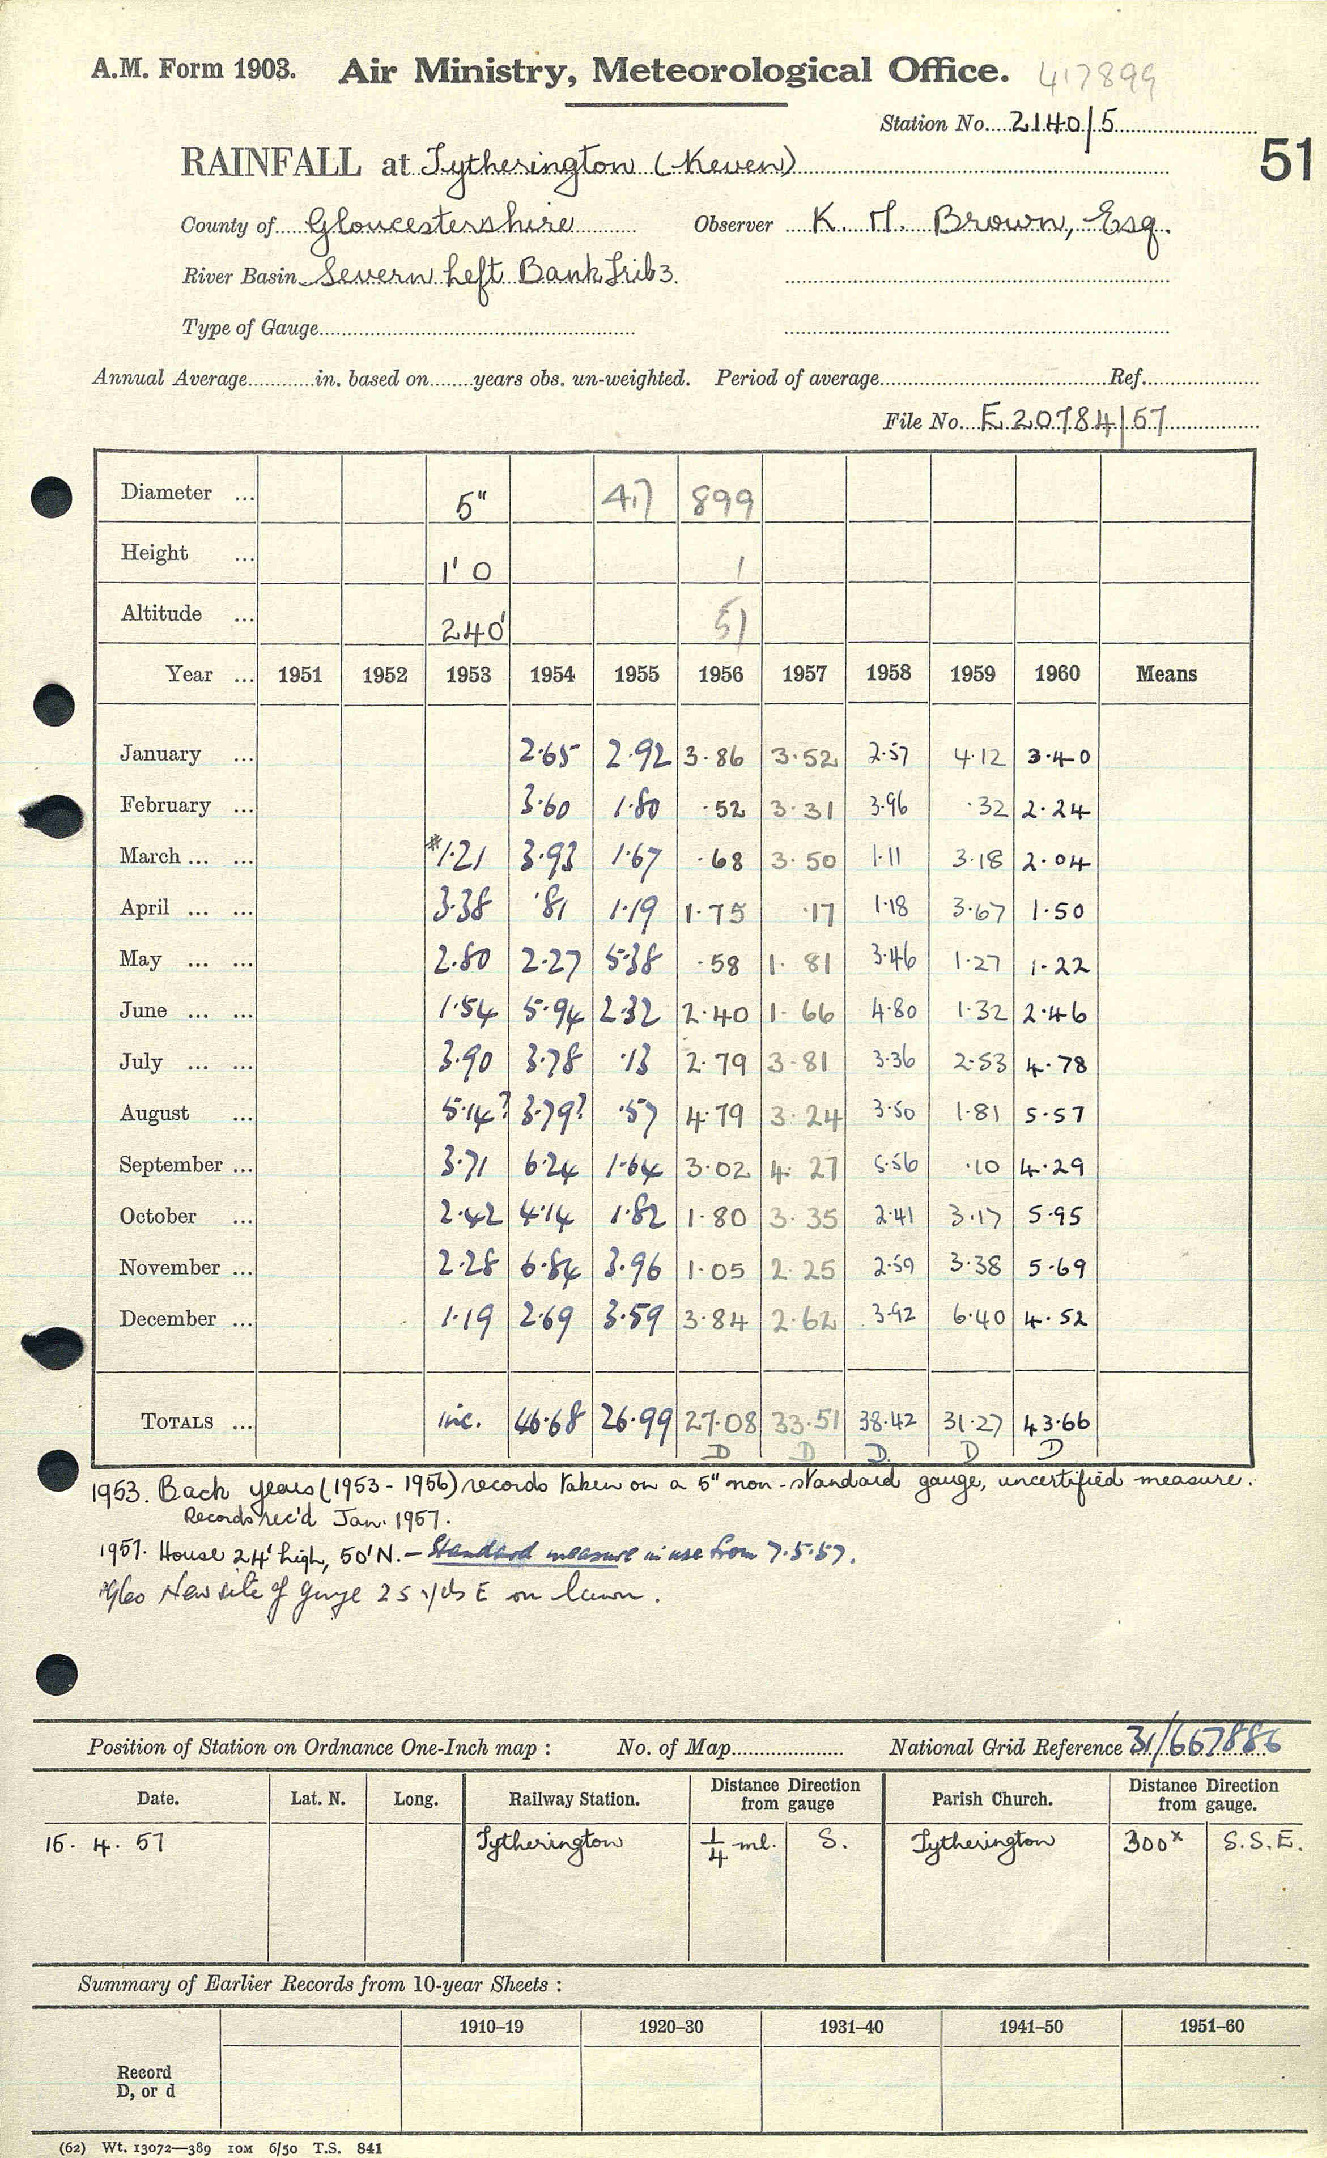 A.M. Form 1903. Air Ministry, Meteorological Office. 417899
Station No. 2140/5
51
RAINFALL at Tytherington (Keven)
County of Gloucestershire Observer K. M. Brown, Esq.
River Basin Severn Left Bank Trib 3.
Type of Gauge
Annual Average in. based on years obs. un-weighted. Period of average Ref.
File No. E 20784/57
Diameter ... 5" 417 899
Height ... 1' 0 1
Altitude ... 240' 51
Year ... 1951 1952 1953 1954 1955 1956 1957 1958 1959 1960 Means
January ... 2.65 2.92 3.86 3.52 2.57 4.12 3.40
February ... 3.60 1.80 .52 3.31 3.96 .32 2.24
March ... ... *1.21 3.93 1.67 .68 3.50 1.11 3.18 2.04
April ... ... 3.38 .81 1.19 1.75 .17 1.18 3.67 1.50
May ... ... 2.80 2.27 5.38 .58 1.81 3.46 1.27 1.22
June ... ... 1.54 5.94 2.32 2.40 1.66 4.80 1.32 2.46
July ... ... 3.90 3.78 .13 2.79 3.81 3.36 2.53 4.78
August ... 5.14? 3.79? .57 4.79 3.24 3.50 1.81 5.57
September ... 3.71 6.24 1.64 3.02 4.27 5.56 .10 4.29
October ... 2.42 4.14 1.82 1.80 3.35 2.41 3.17 5.95
November ... 2.28 6.84 3.96 1.05 2.25 2.59 3.38 5.69
December ... 1.19 2.69 3.59 3.84 2.62 3.92 6.40 4.52
TOTALS ... inc. 46.68 26.99 27.08 33.51 38.42 31.27 43.66
D D D D D
1953. Back years (1953 - 1956) records taken on a 5" non-standard gauge, uncertified measure.
Records rec'd Jan. 1957.
1957. House 24' high, 50' N. - Standard measure in use from 7.5.57.
New site of gauge 25 yds E on lawn.
Position of Station on Ordnance One-Inch map : No. of Map National Grid Reference 31/667886
Date. Lat. N. Long. Railway Station. Distance Direction from gauge Parish Church. Distance Direction from gauge.
15. 4. 57 Tytherington 1/4 ml. S. Tytherington 300x S.S.E.
Summary of Earlier Records from 10-year Sheets :
1910–19 1920–30 1931–40 1941–50 1951–60
Record
D, or d
(62) Wt. 13072—389 10M 6/50 T.S. 841